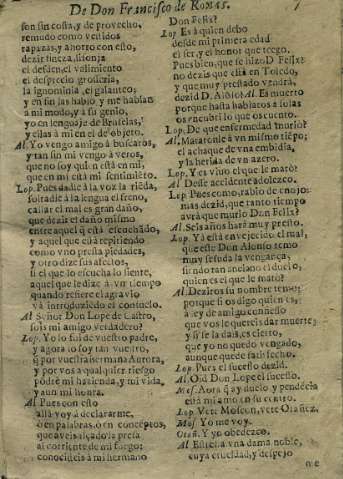 De Don Francisco de Roxas. 7
son sin costa, y de provecho,
remudo como vestidos
rapazas, y ahorro con esto,
dezir fineza,
el desden, el valimiento
el desprecio groseria,
la ignominia, el galanteo;
y en fin las hablo, y me hablan
a mi modo, y a su genio,
yo en lenguaje de Bruselas,
y ellas a mi en el de objeto.
Al. Yo vengo amigo à buscaros,
y tan sin mi vengo a veros,
que no soy quien està en mi,
que en mi està mi sentimiento.
Lop. Pues dadle à la voz la rienda,
soltadle à la lengua el freno,
callar el mal es gran daño,
que dezir el daño mismo
entre aquel que està escuchado,
y aquel que està repitiendo
como vno presta piedades,
y otro dize sus afectos,
si el que lo escucha lo siente,
aquel que le dize à vn tiempo
quando refiere el agravio
và introduziendo el consuelo.
Al. Señor Don Lope de Castro,
sois mi amigo verdadero?
Lop. Yo lo fui de vuestro padre,
y agora lo soy tan vuestro,
que por vuestra hermana Aurora,
y por vos a qualquier riesgo
pondrè mi hazienda, y mi vida,
y aun mi honra.
Al. Pues con esto
allà voy à declararme,
ò en palabras, ò en conceptos,
que aveis
al corriente de mi fuego;
conocisteis à mi hermano
Don Felix?
Lop. Es à quien debo
desde mi primera edad
el ser, y el honor que tengo.
Pues bien, que se hizo D. Felix?
no dezis que està en Toledo,
y que muy prestado vendrà,
dezid D. Al. Es muerto
porque hasta hablaros a solas
os encubrì lo que os cuento.
Lop. De que enfermedad murio?
Al. Mataronle à vn mismo tiempo;
el achaque de vna embidia,
y la herida de vn azero.
Lop. Y es vivo el que le matò?
Al. Desse accidente adolezco.
Lop. Pues como, rabio de enojo:
mas dezid, que tanto tiempo
avrà que murio Don Felix?
Al. Seis años harà muy presto.
Lop. Yà està envejecido el mal,
que este Don Alonso temo
muy sesuda la vengança,
siendo tan anciano el duelo;
quien es el que le matò?
Al. Deziros su nombre temo:
porque si os digo quien es,
a ley de amigo connesso
que vos le quereis dar muerte;
y si se la dais, es cierto,
que yo no quedo vengado,
aunque quede satisfecho.
Lop. Pues el sucesso dezid.
Al. Oid Don Lope el sucesso.
Mos. Aora ay duelo, y pendencia
està mi amo en su centro.
Lop. Vete Moscon, vete Otañez.
Mos. Yo me voy.
Otañ. Y yo obedezco.
Al. Estrella vna dama noble,
cuya crueldad, y despejo